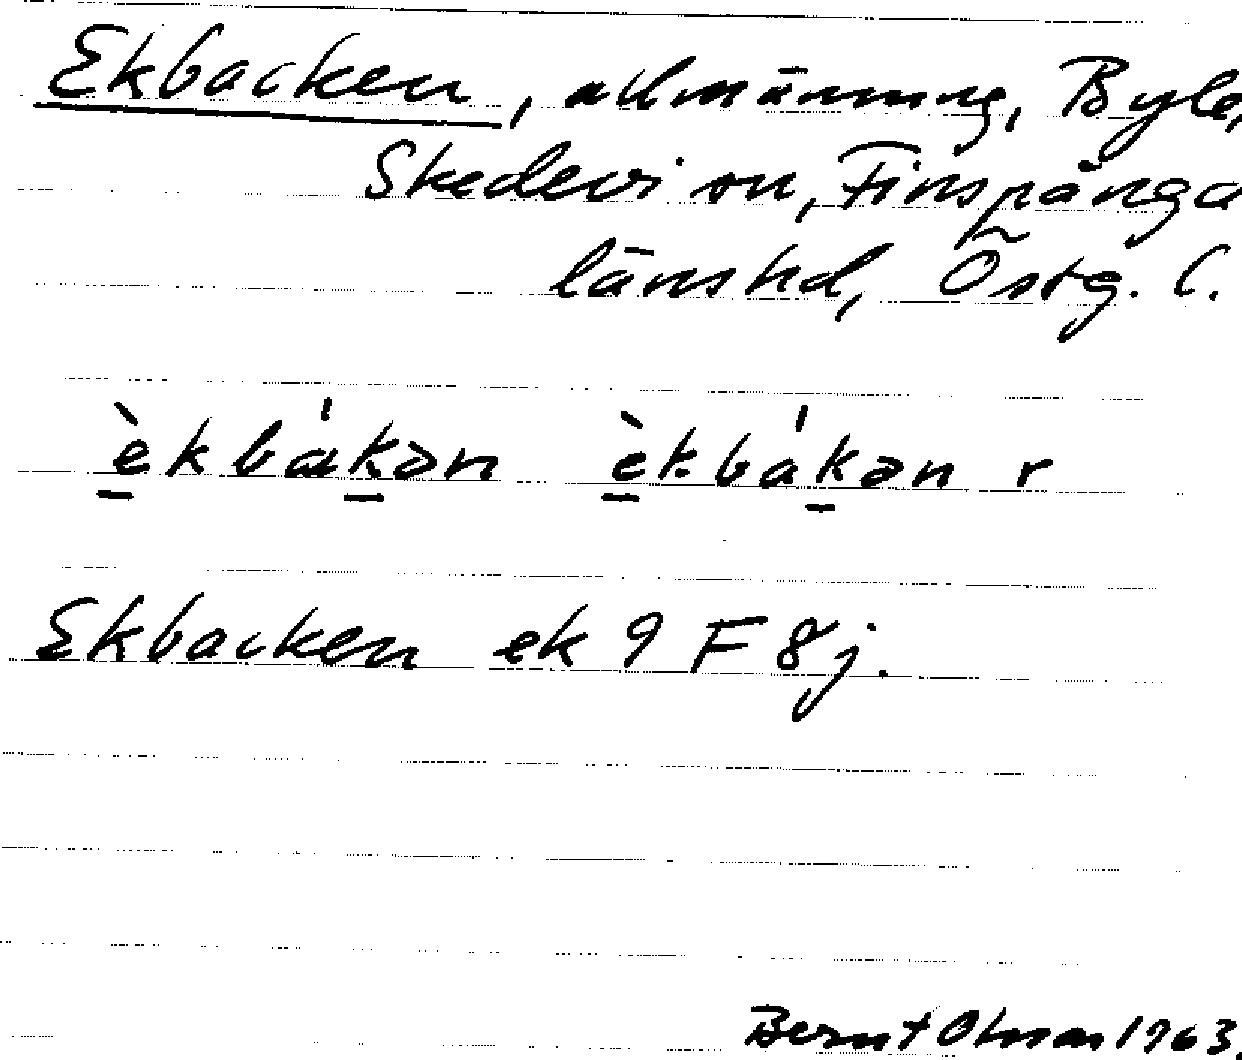 Ekbacken, allmänning, Byle,
Skedevi sn, Finspånga
länshd, Östg. l.
èkbákən èkbákən r
Ekbacken ek 9 F 8j.
Bernt Olman 1963.